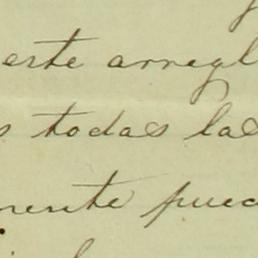 este arregl
s todas las
mente pued